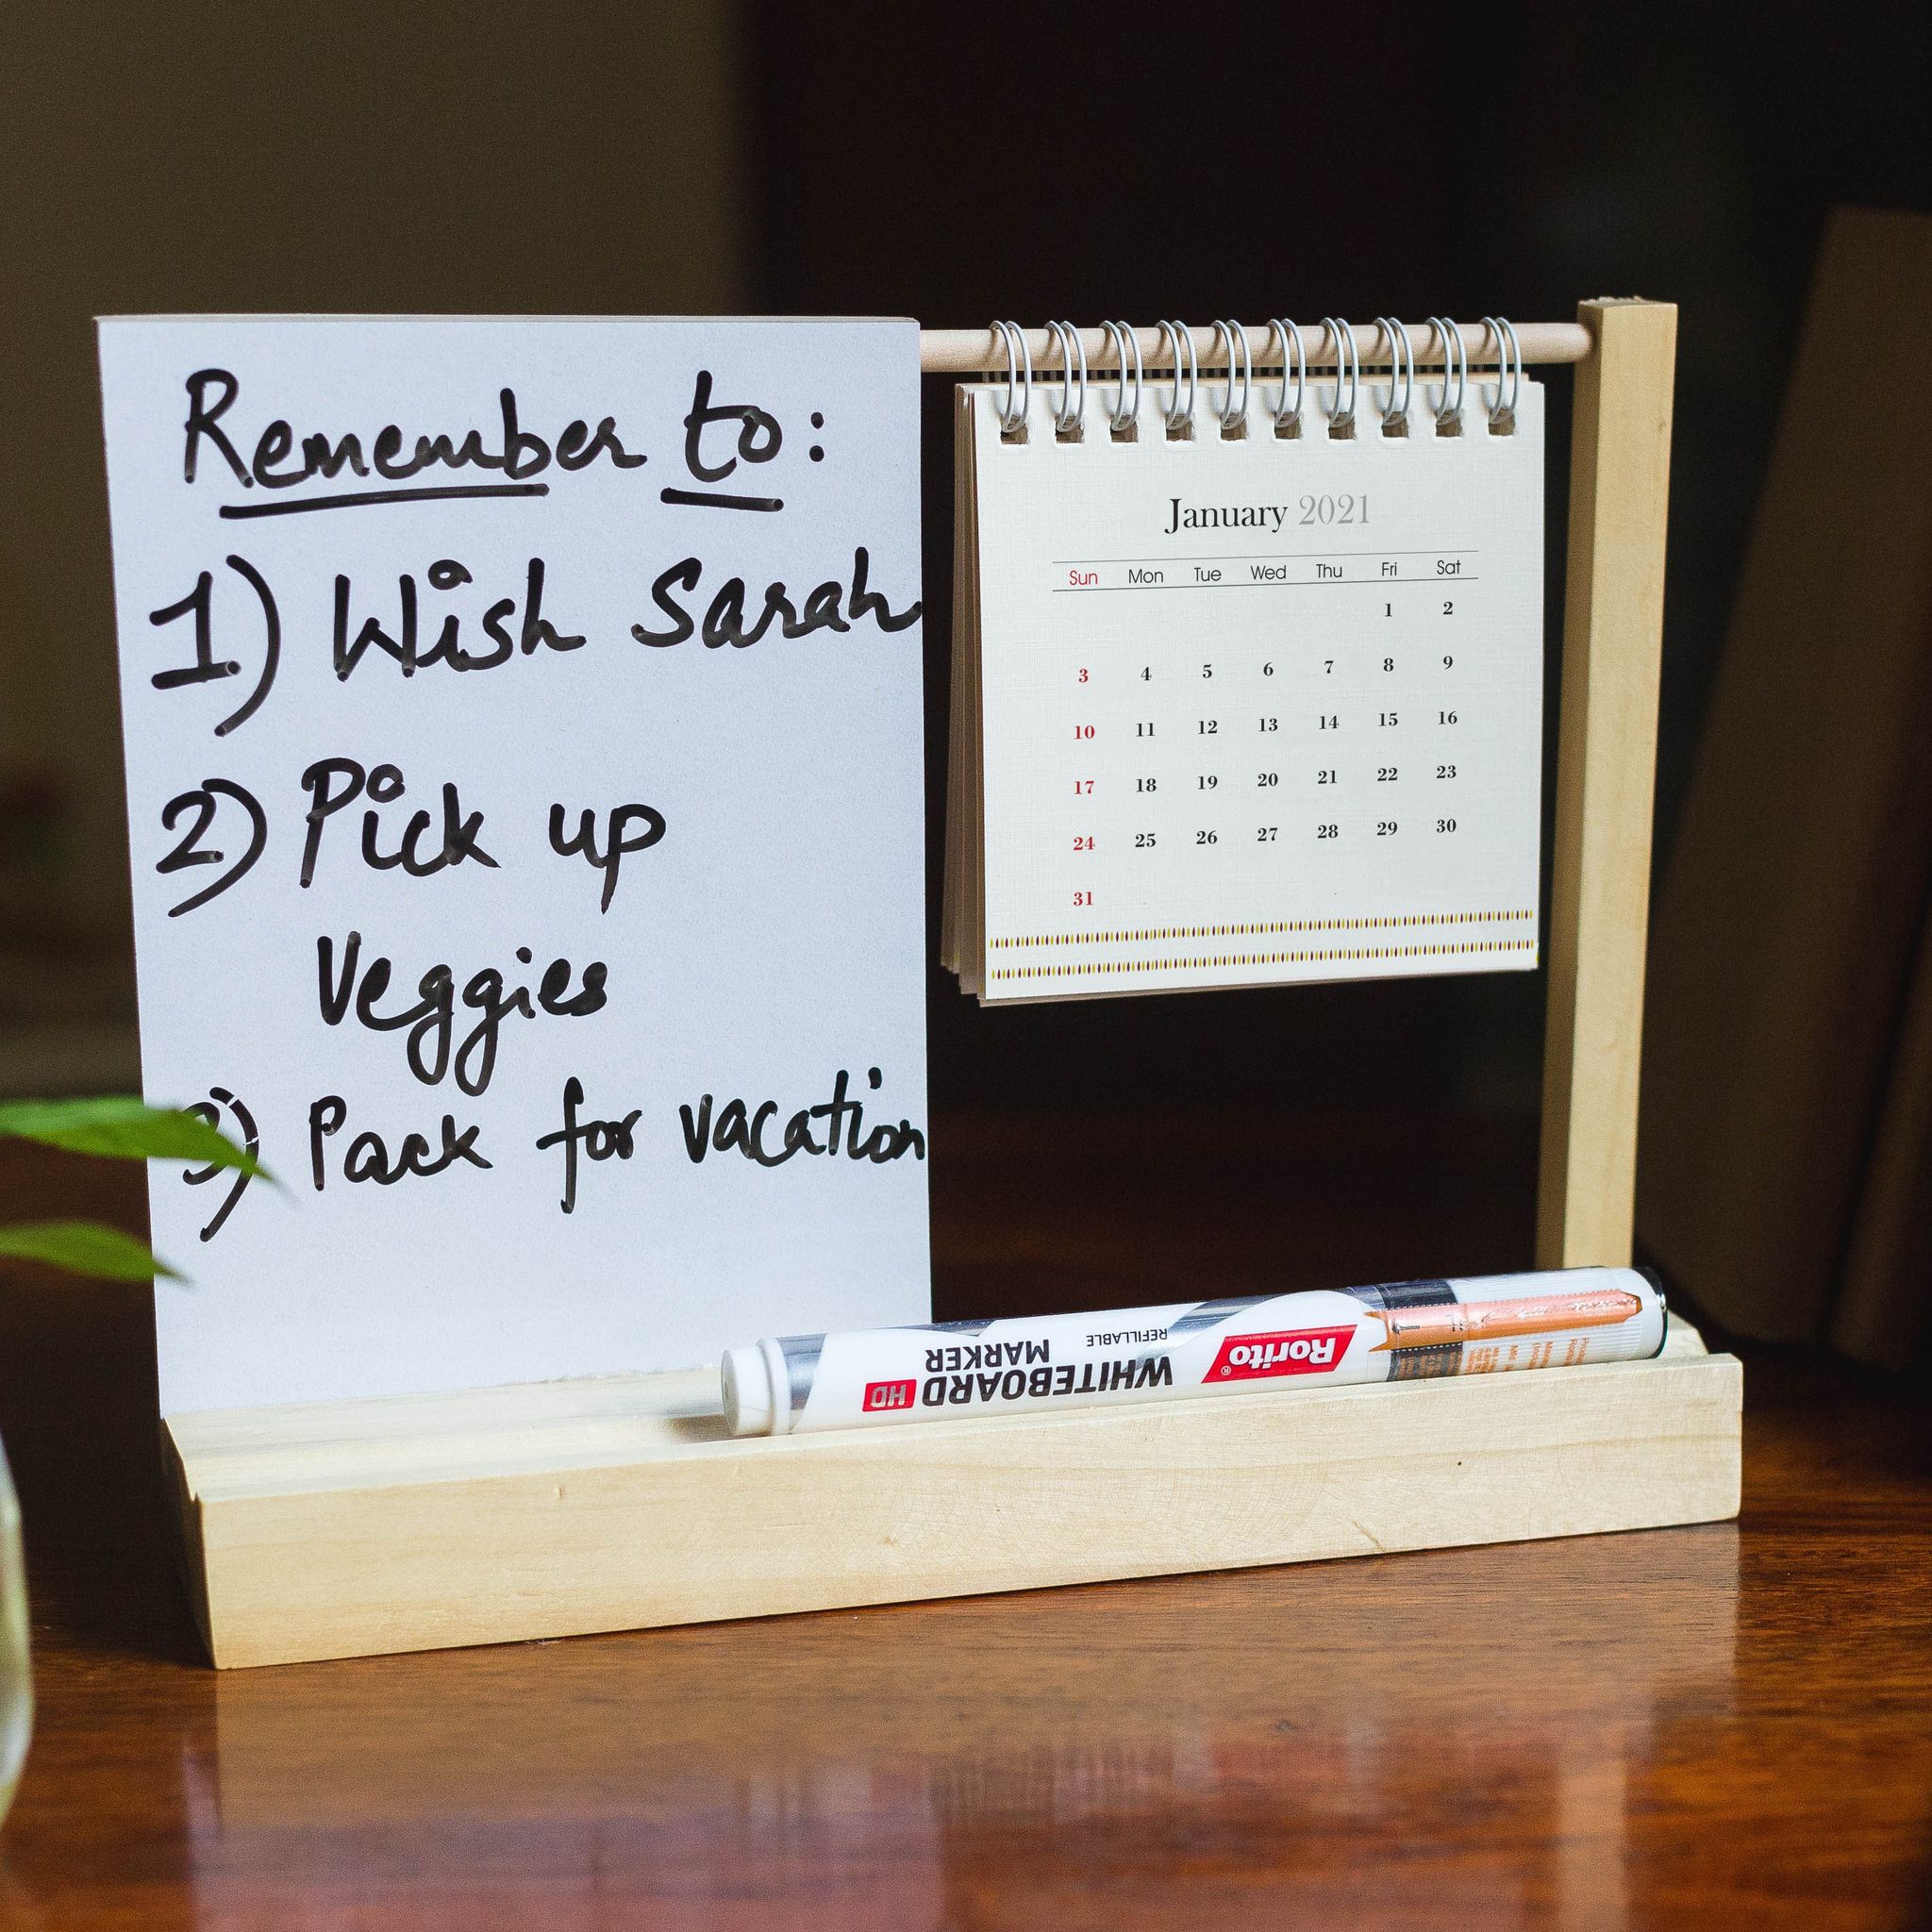 Remember to:
1) Wish Sarah
2) Pick up
Veggies
3) Pack for vacation
January 2021
Sun Mon Tue Wed Thu Fri Sat
1 2
3 4 5 6 7 8 9
10 11 12 13 14 15 16
17 18 19 20 21 22 23
24 25 26 27 28 29 30
31
Rorito®
REFILLABLE
WHITEBOARD
MARKER HD